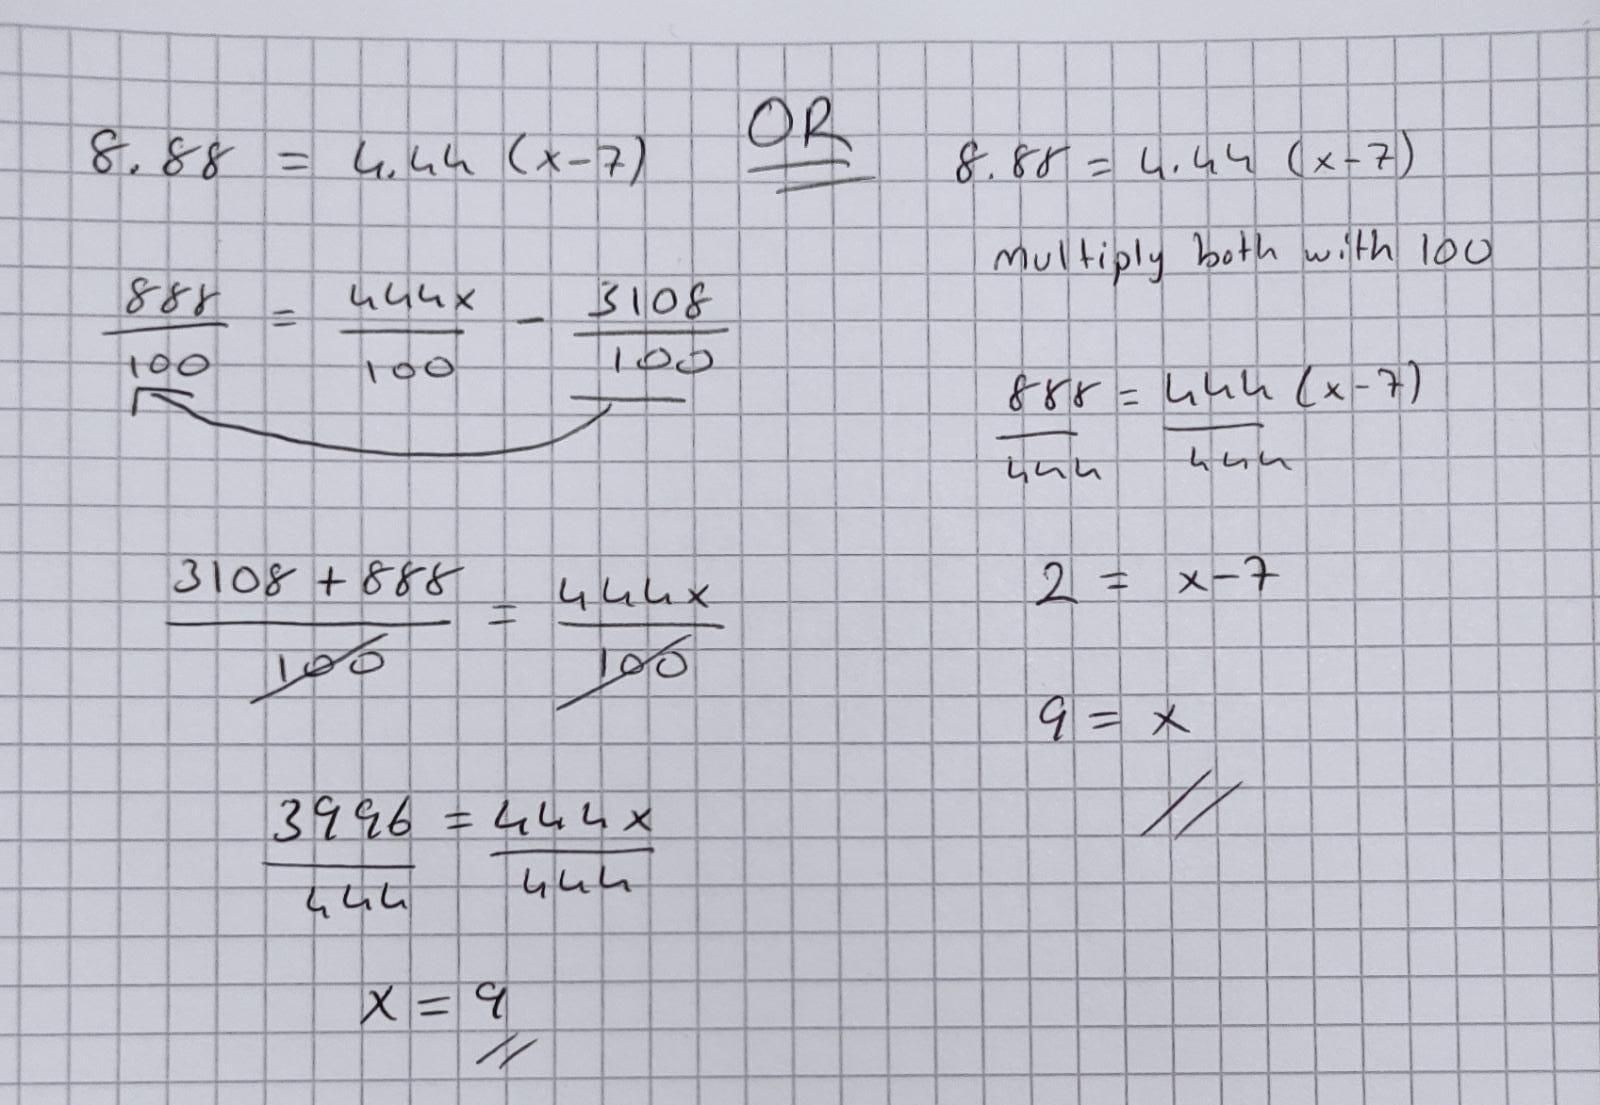 8.88 = 4.44 (x-7)
888/100 = 444x/100 - 3108/100
3108 + 888/100 = 444x/100
3996/444 = 444x/444
x = 9
OR
8.88 = 4.44 (x-7)
Multiply both with 100
888/444 = 444/444 (x-7)
2 = x-7
9 = x